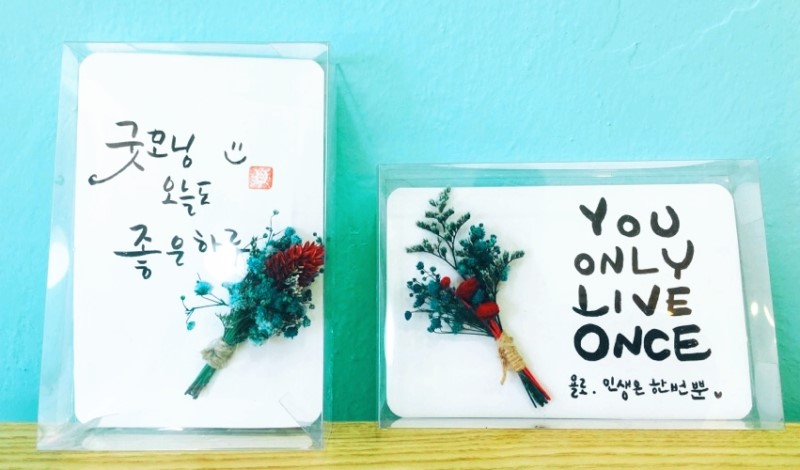 굿모닝
오늘도
좋은하루
YOU
ONLY
LIVE
ONCE
욜로. 인생은 한번뿐